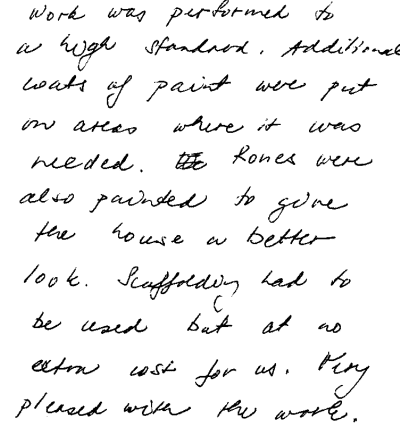 work was performed to
a high standard. Additional
coats of paint were put
on areas where it was
needed. Rones were
also painted to give
the house a better
look. Scaffolding had to
be used but at no
extra cost for us. Very
pleased with the work.